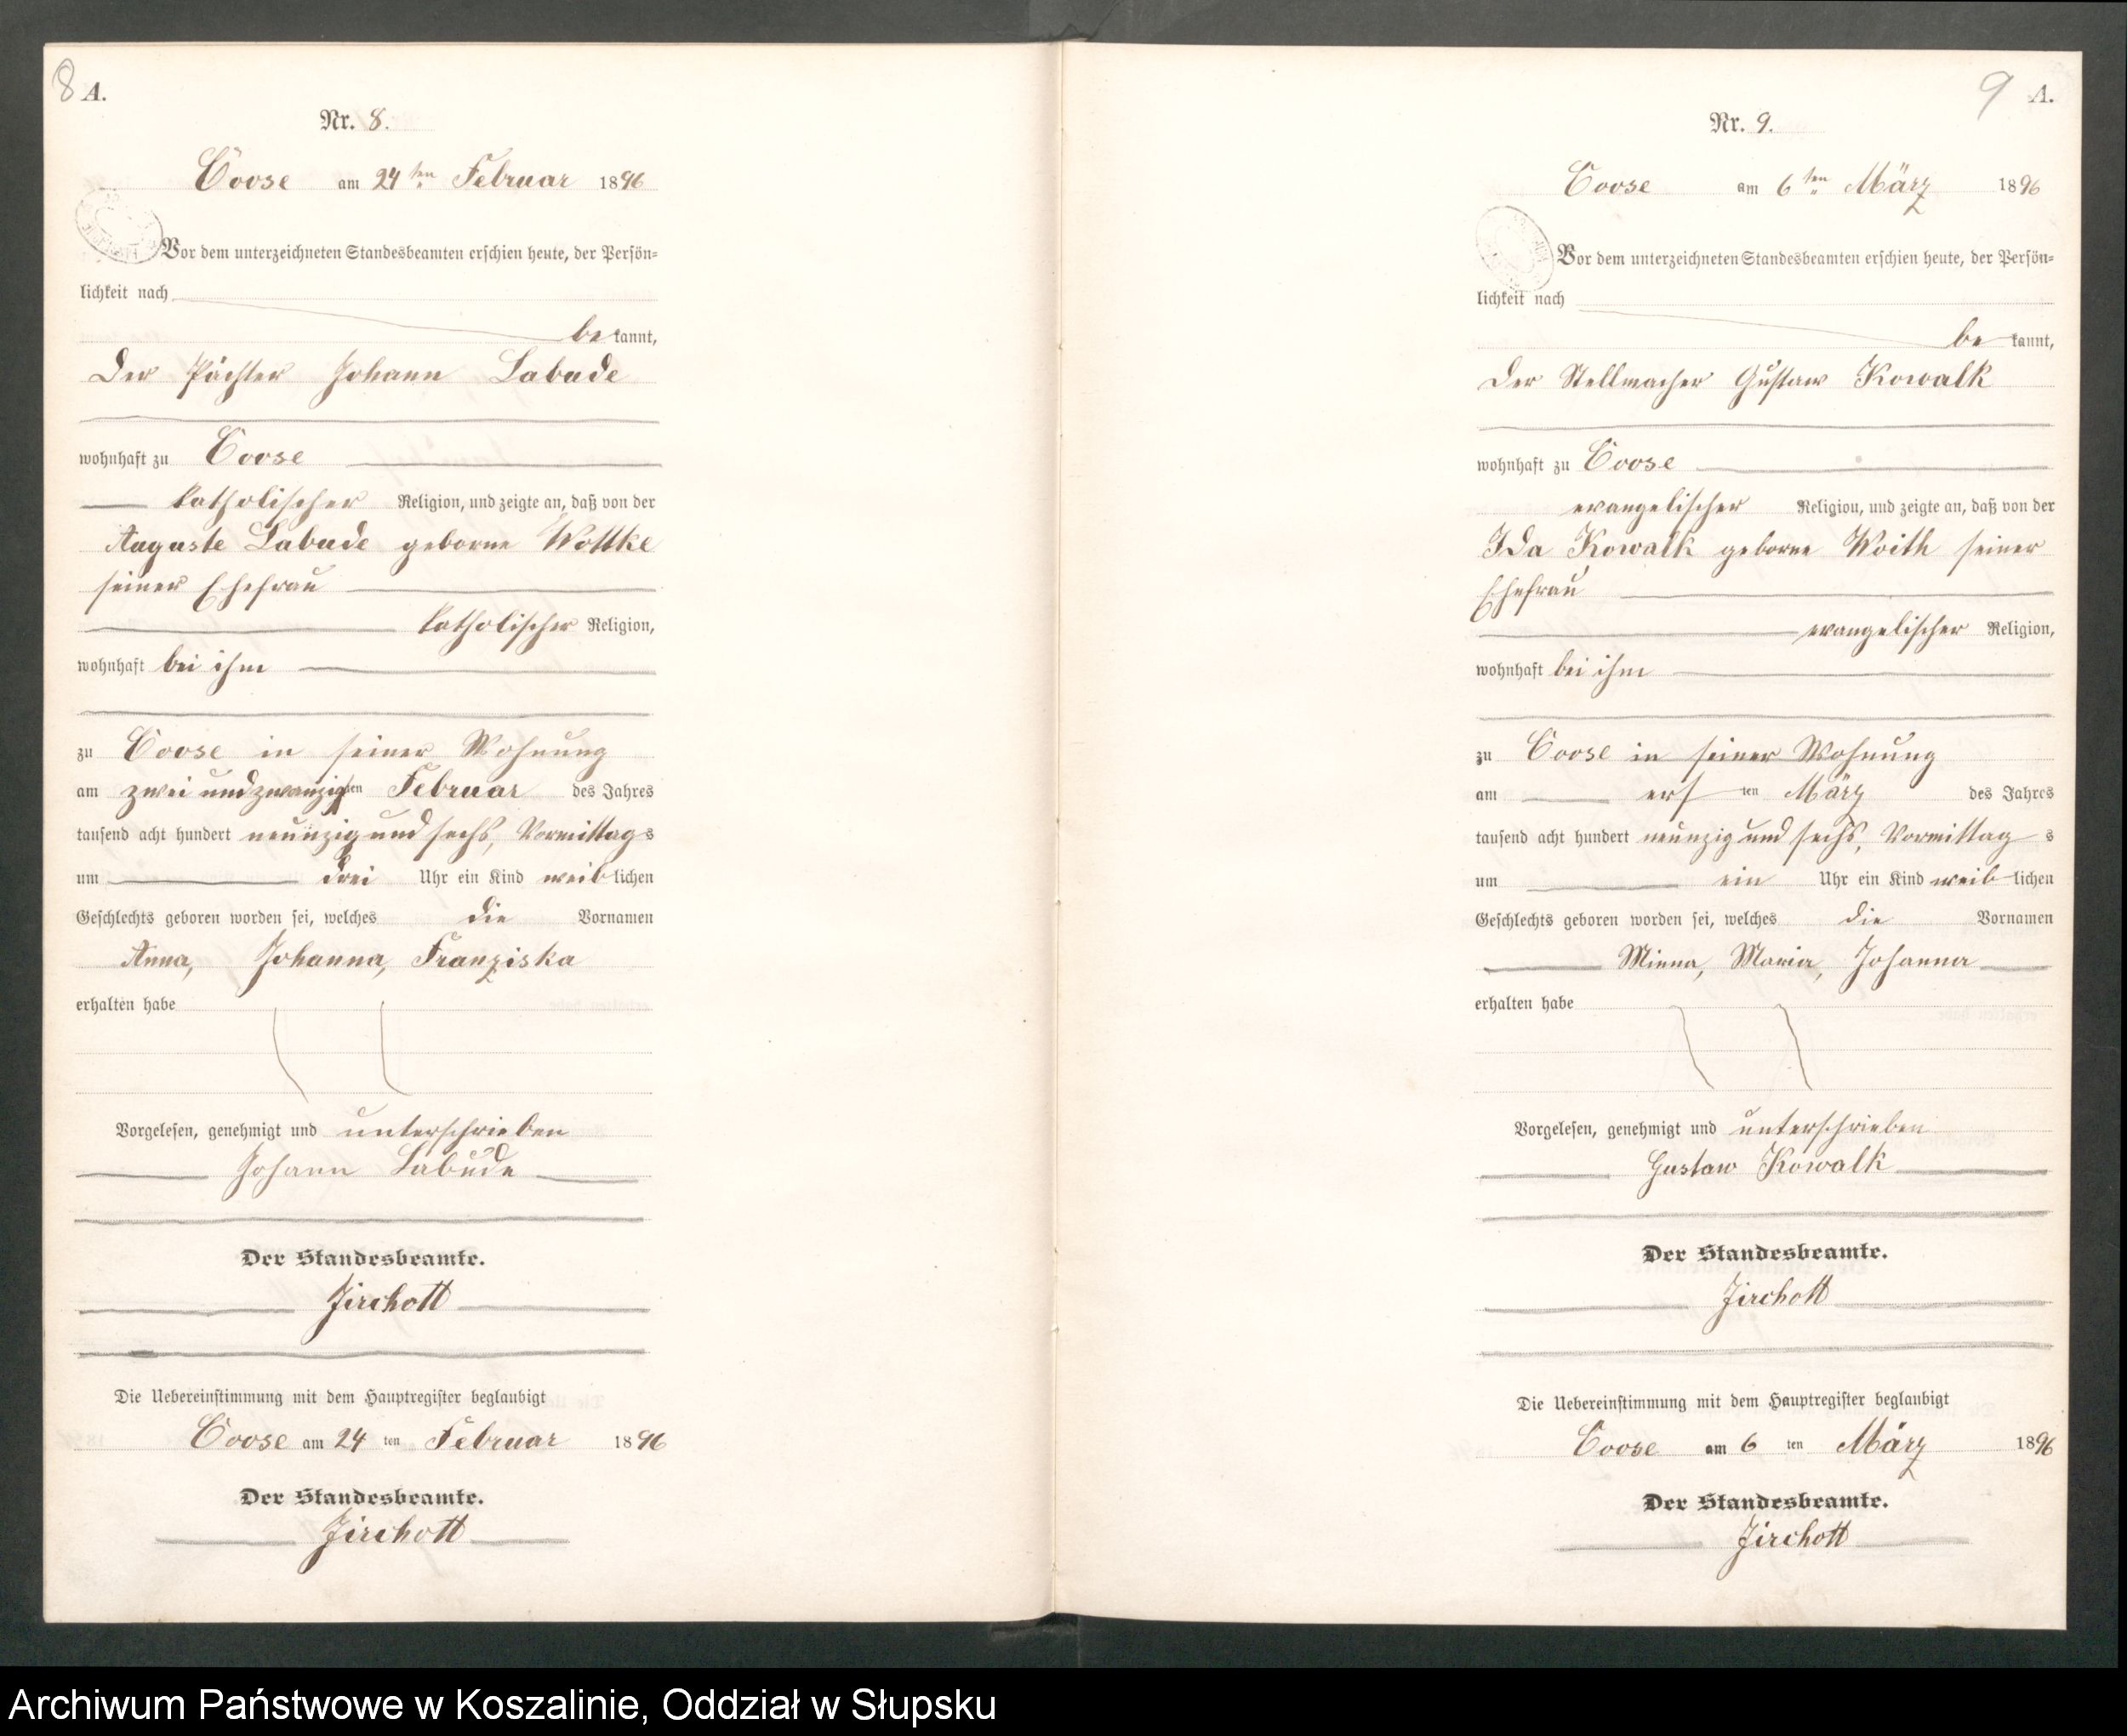 8 A.
Nr. 8.
Coose am 24 ten Februar 1896
Vor dem unterzeichneten Standesbeamten erschien heute, der Persön=
lichkeit nach
be kannt,
der Pächter Johann Labude
wohnhaft zu Coose
katholischer Religion, und zeigte an, daß von der
Auguste Labude geborne Wottke
seiner Ehefrau
katholischer Religion,
wohnhaft bei ihm
zu Coose in seiner Wohnung
am zwei und zwanzigsten Februar des Jahres
tausend acht hundert neunzig und sechs, Vormittags
um drei Uhr ein Kind weiblichen
Geschlechts geboren worden sei, welches die Vornamen
Anna, Johanna, Franziska
erhalten habe
Vorgelesen, genehmigt und unterschrieben
Johann Labude
Der Standesbeamte.
Zirchott
Die Uebereinstimmung mit dem Hauptregister beglaubigt
Coose am 24 ten Februar 1896
Der Standesbeamte.
Zirchott
9 A.
Nr. 9.
Coose am 6 ten März 1896
Vor dem unterzeichneten Standesbeamten erschien heute, der Persön=
lichkeit nach
be kannt,
der Stellmacher Gustaw Kowalk
wohnhaft zu Coose
evangelischer Religion, und zeigte an, daß von der
Ida Kowalk geborne Woith seiner
Ehefrau
evangelischer Religion,
wohnhaft bei ihm
zu Coose in seiner Wohnung
am ersten März des Jahres
tausend acht hundert neunzig und sechs, Vormittags
um ein Uhr ein Kind weiblichen
Geschlechts geboren worden sei, welches die Vornamen
Minna, Maria, Johanna
erhalten habe
Vorgelesen, genehmigt und unterschrieben
Gustaw Kowalk
Der Standesbeamte.
Zirchott
Die Uebereinstimmung mit dem Hauptregister beglaubigt
Coose am 6 ten März 1896
Der Standesbeamte.
Zirchott
Archiwum Państwowe w Koszalinie, Oddział w Słupsku